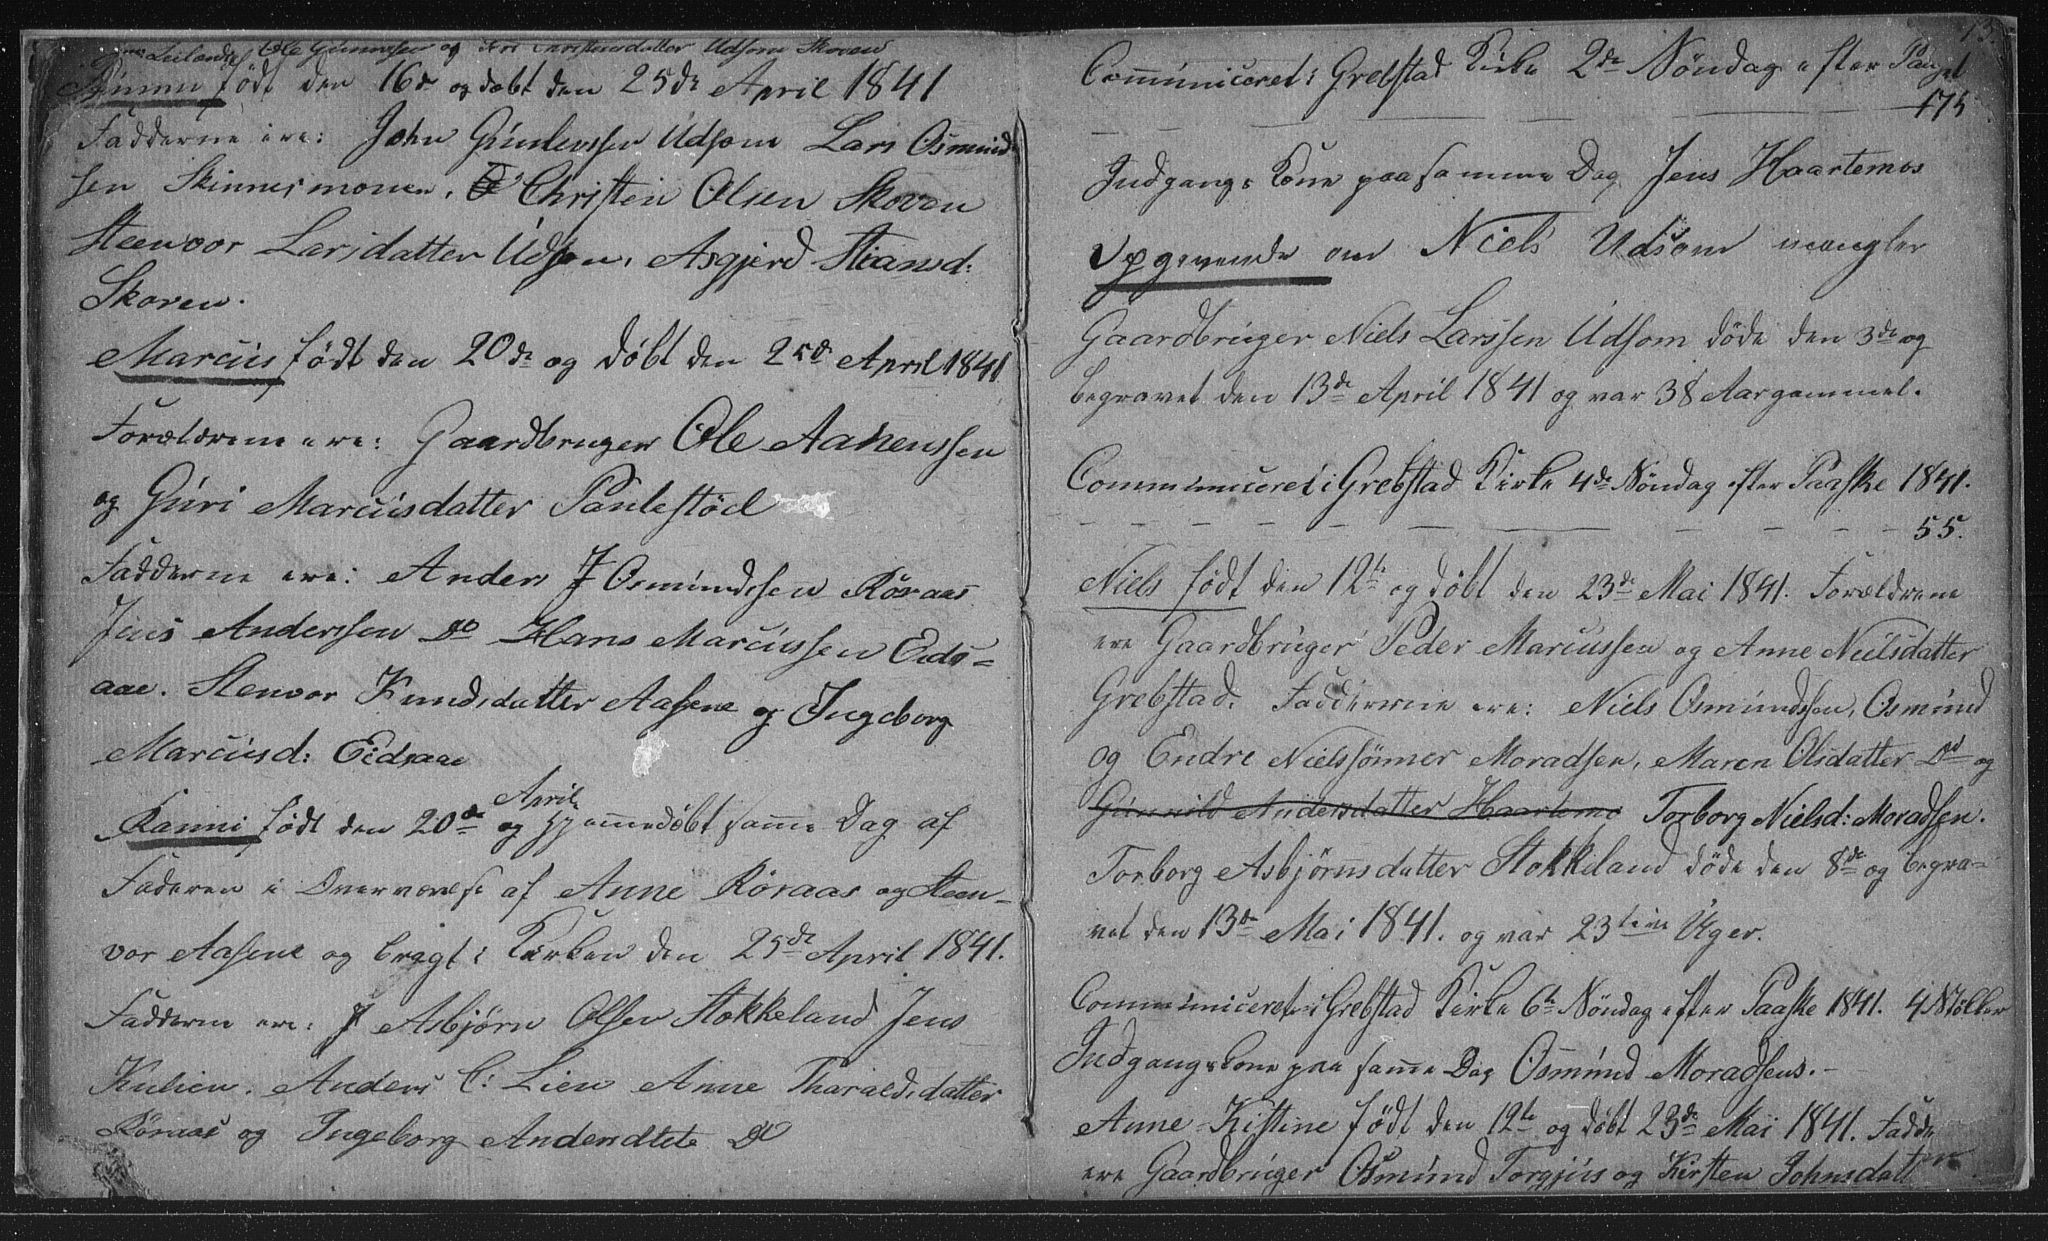 Leilænding Ole Gunnersen og Siri Christensdatter Udsom Skoven
Gunnu født den 16de og døbt den 25de April 1841
Fadderne ere: John Gunlenssen Udsom Lars Osmund-
sen Skinnesmonen, Christen Olsen Skoven
Steenvor Larsdatter Udsom, Asgjerd Steansd:
Skoven.
Marcus født den 20de og døbt den 25de April 1841
Forældrene ere: Gaardbruger Ole Aanenssen
og Guri Marcusdatter Paulestöel
Fadderne ere: Anders Osmundssen Röraas
Jens Anderssen Do Hans Marcussen Eids-
aae. Stenvor Knudsdatter Aasene og Ingeborg
Marcusd: Eidsaae
April
Ranni født den 20de og hjemmedøbt samme Dag af
Faderen i Overværelse af Anne Röraas og Steen-
vor Aasene og bragt i Kirken den 25de April 1841.
Fadderne ere: Asbjørn Olsen Stokkeland Jens
Kulien. Anders C: Lien Anne Tharaldsdatter
Röraas og Ingeborg Andersdtete Do
13.
Communiceret i Grebstad Kirke 2de Søndag efter Paaske
175
Indgangs Kone paa samme Dag Jens Haartemos
Opgivende om Niels Udsom mangler
Gaardbruger Niels Larssen Udsom døde den 3de og
begravet den 13de April 1841 og var 38 Aar gammel.
Communiceret i Grebstad Kirke 4de Søndag efter Paaske 1841.
55.
Niels født den 12te og døbt den 23de Mai 1841. Forældrene
ere Gaardbruger Peder Marcussen og Anne Nielsdatter
Grebstad. Fadderne ere: Niels Osmundssen, Osmund
og Endre Nielssönner Moradsen, Maren Olsdatter Do og
Gunnild Andersdatter Haartemo Torborg Nielsd: Moradsen.
Torborg Asbjörnsdatter Stokkeland døde den 8de og begra-
vet den 13de Mai 1841. og var 23 Uger.
Communiceret i Grebstad Kirke 6te Søndag efter Paaske 1841. 4
Indgangskone paa samme Dag Osmund Moradsens.
Anne Kistine født den 12te og døbt 23de Mai 1841.
ere Gaardbruger Osmund Torgjus og Kirsten Johnsdatt